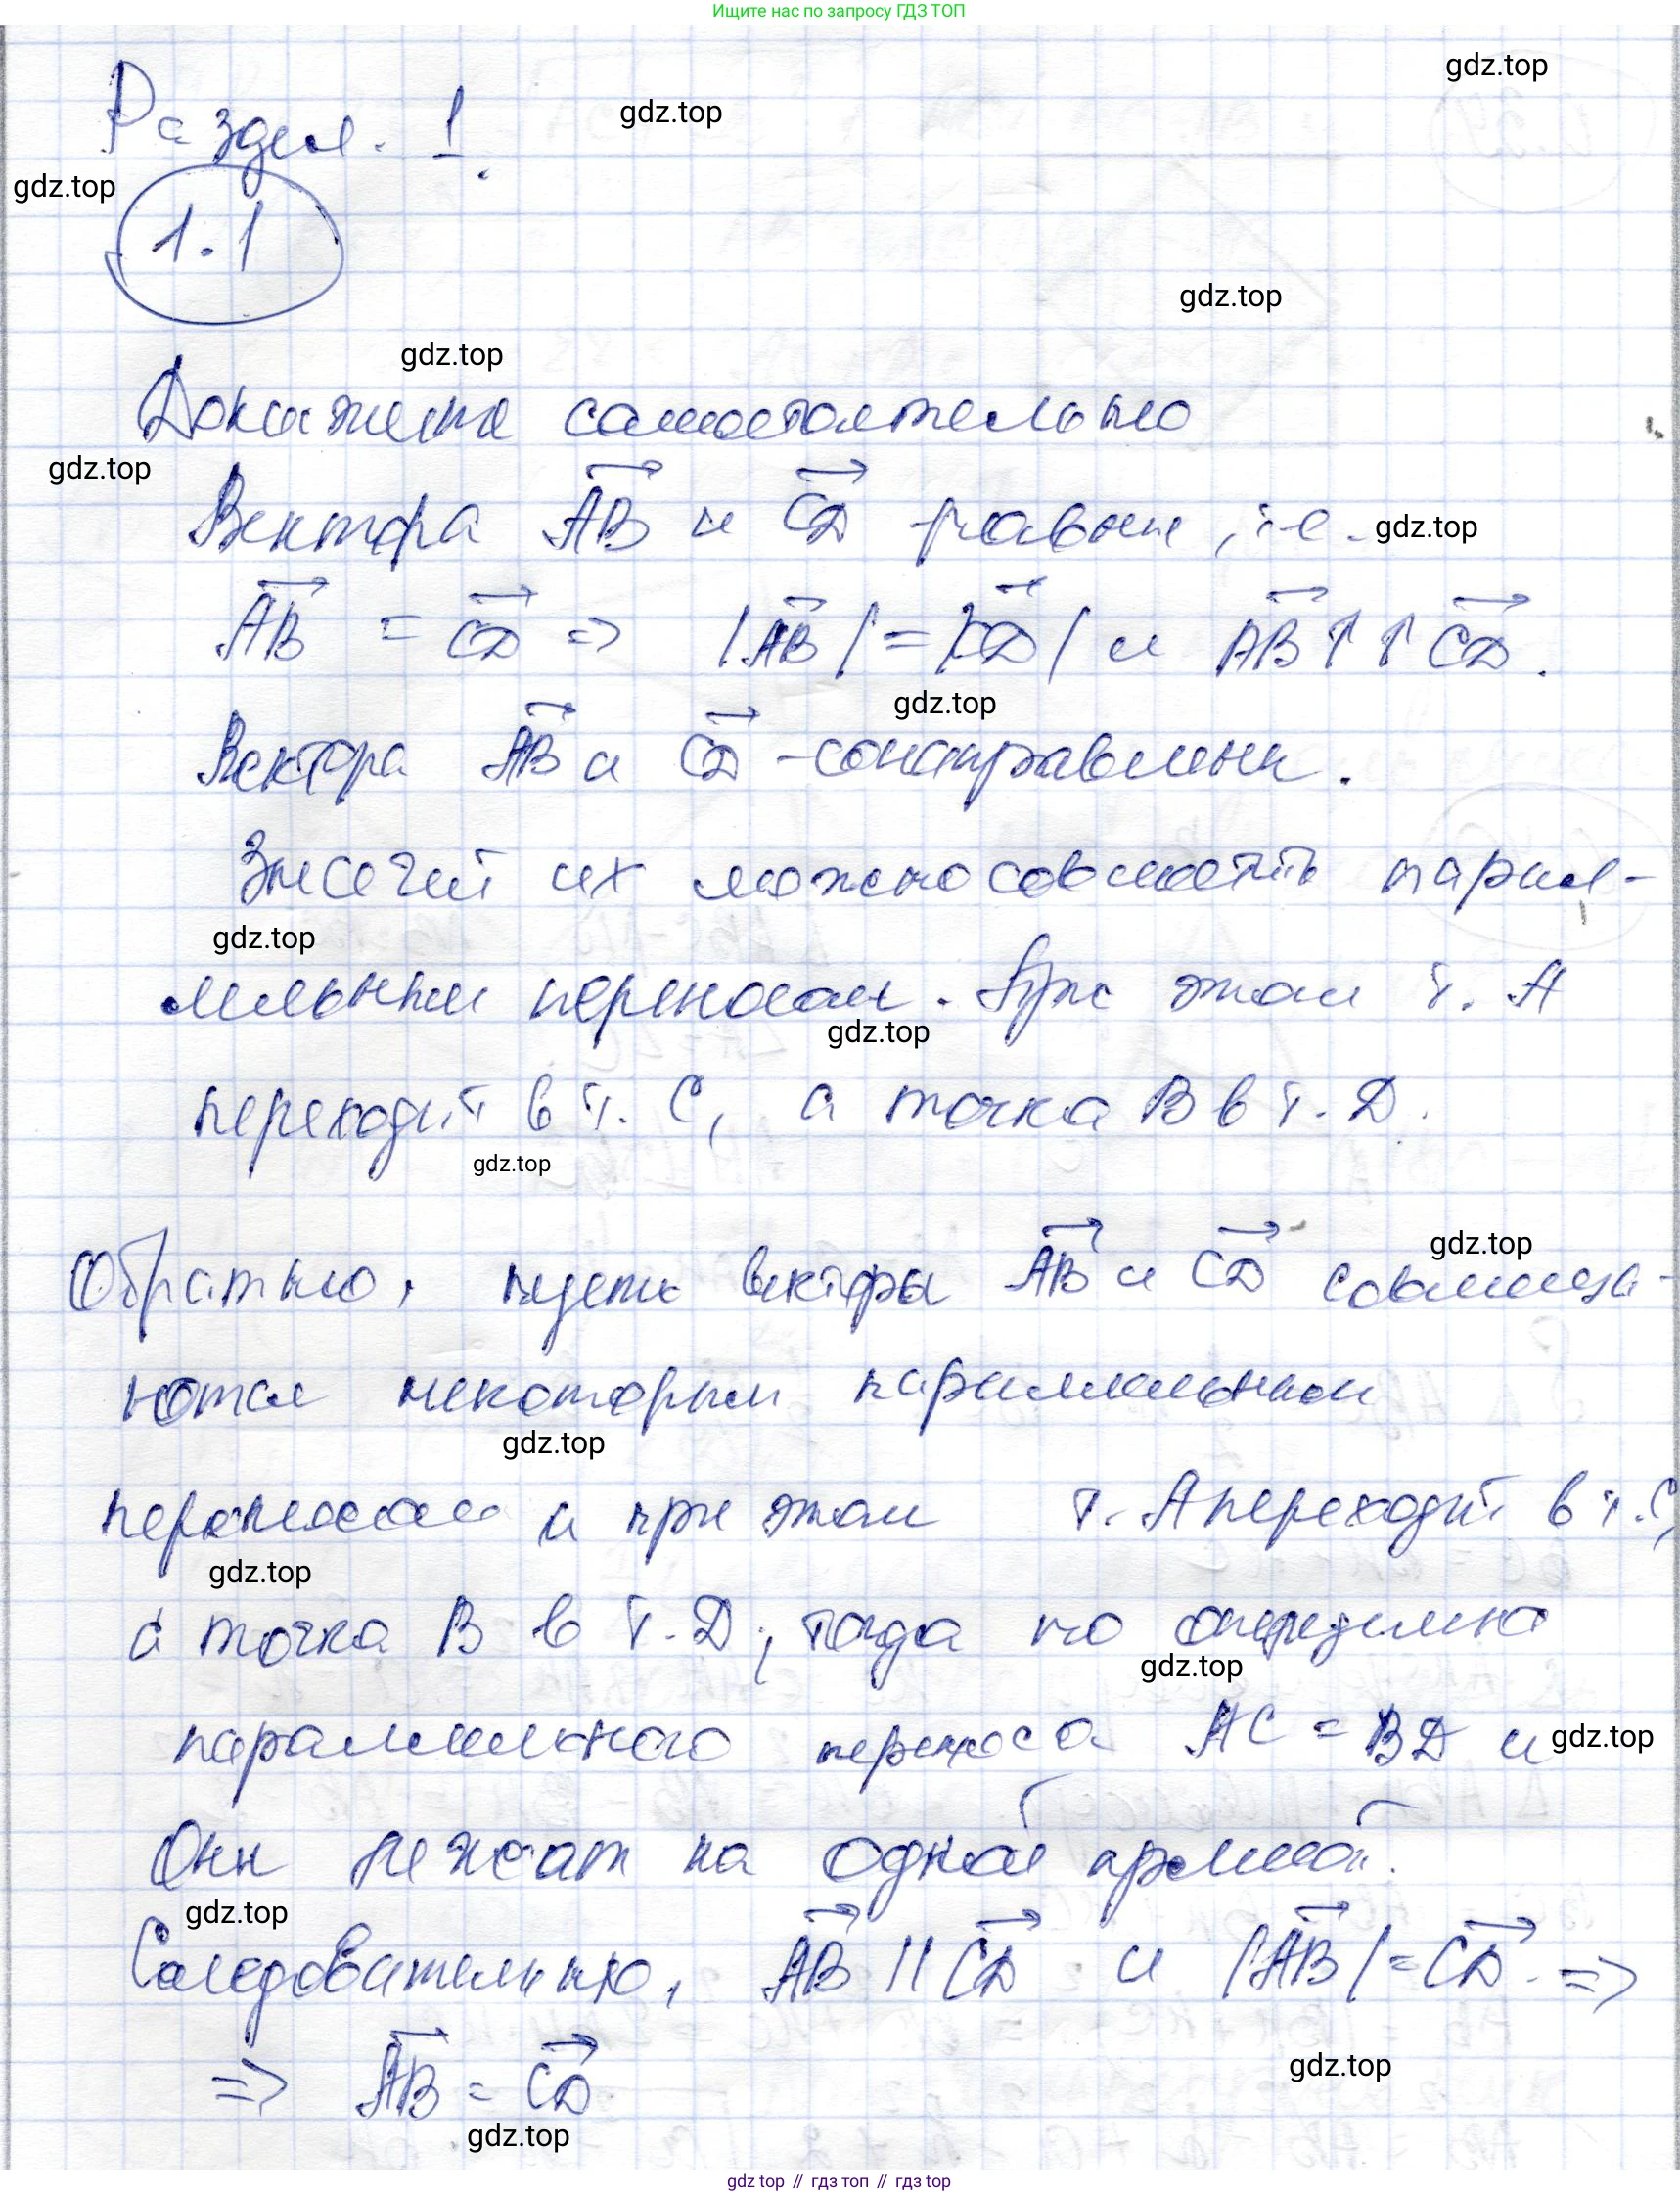 Ищите нас по запросу ГДЗ ТОП
gdz.top
Раздел. 1.
gdz.top
gdz.top
1.1
gdz.top
gdz.top
Докажите самостоятельно
gdz.top
Вектора AB и CD равны, т.е.
gdz.top
AB = CD => |AB| = |CD| и AB ↑↑ CD.
gdz.top
Вектора AB и CD - сонаправлены.
Значит их можно совместить парал-
gdz.top
лельным переносом. При этом т. А
gdz.top
переходит в т. С, а точка В в т. D.
gdz.top
gdz.top
Обратно, пусть векторы AB и CD совмеща-
ются некоторым параллельным
gdz.top
переносом и при этом т. А переходит в т. С,
gdz.top
а точка В в т. D, тогда по определению
gdz.top
параллельного переноса AC = BD и
gdz.top
Они лежат на одной прямой.
gdz.top
Следовательно, AB || CD и |AB| = CD. =>
gdz.top
=> AB = CD
gdz.top
gdz top // гдз топ // гдз top